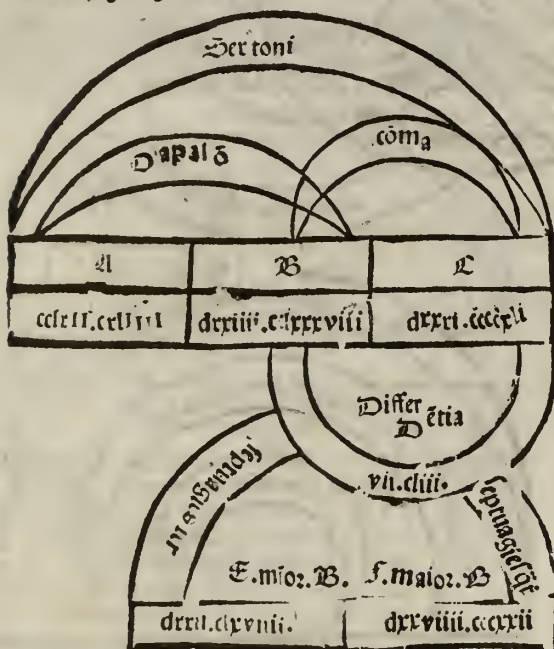 Sex toni
Diapasō
cōma
A B C
cclxii.cxliiii dxxiiii.cclxxxviii dxxxi.ccccxli
Differ
D ētia
vii.cliii.
E.mīor.B. F.maior.B
dxxii.clxviiii. dxxviiii.cccxxii